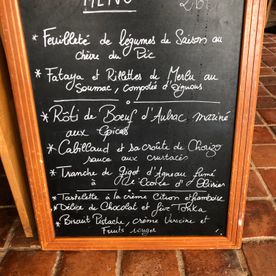 MENU
* Feuilleté de légumes de Saison au
chèvre du Pic
* Fataya et Rillettes de Merlu au
Soumac, compotée d'Oignons
* Rôti de Boeuf d'Aubrac mariné
aux Epices
* Cabillaud et sa croûte de Chorizo
sauce aux crustacés
* Tranche de gigot d'Agneau fumé
à l'Olivier
* Tartelette à la crème Citron et framboise
* Délice de Chocolat et fève Tonka
* Biscuit Pistache, crème Verveine et
Fruits rouges